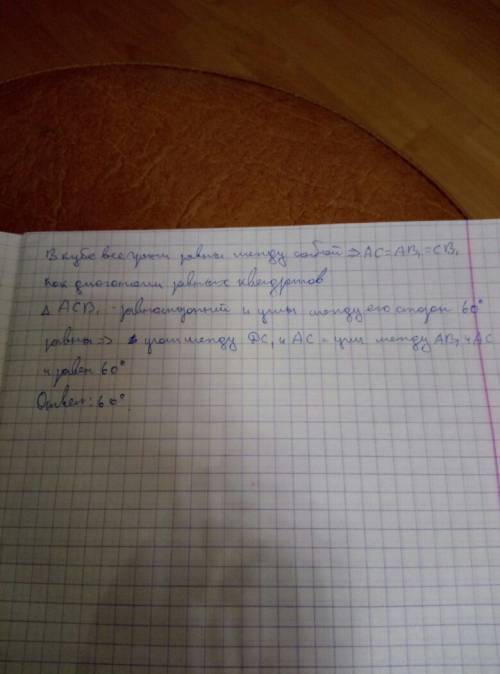 В кубе все грани равны между собой ⇒ AC = AB₁ = CB₁
как диагонали равных квадратов
Δ ACB₁ - равносторонний и углы между его сторон 60°
равны ⇒ угол между DC₁ и AC = угол между AB₁ и AC
и равен 60°
Ответ: 60°